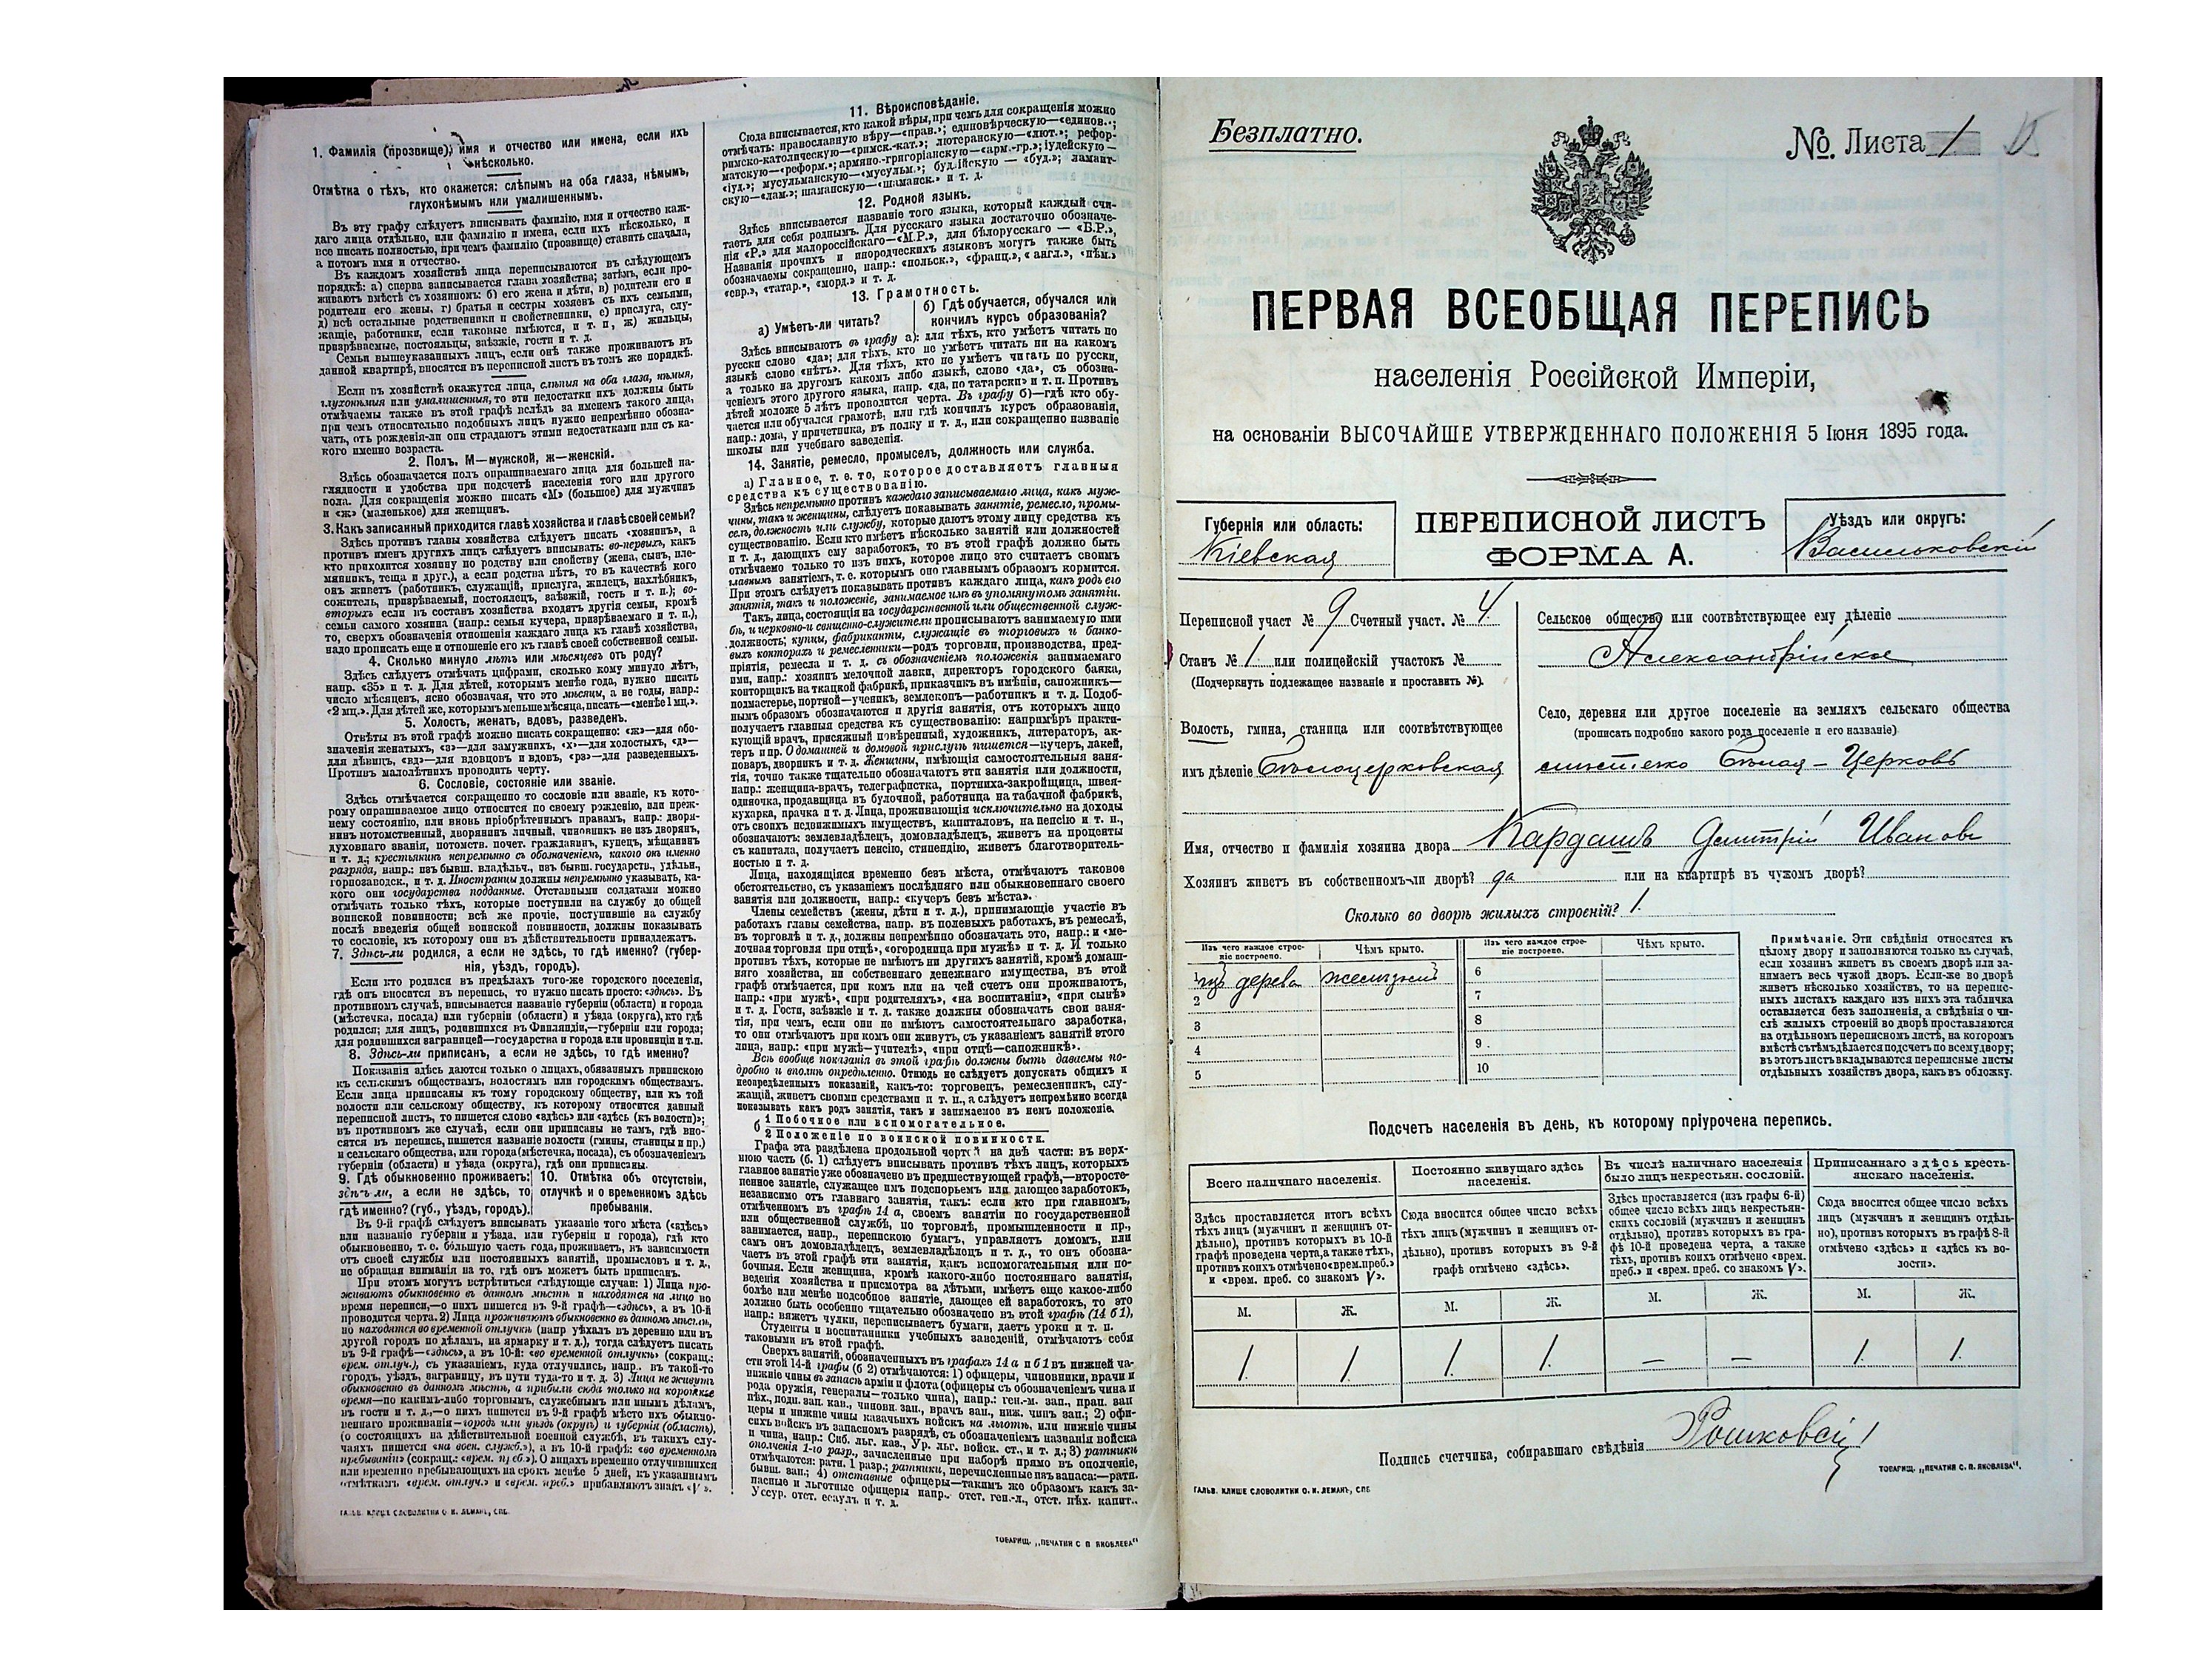 1. Фамилія (прозвище), имя и отчество или имена, если ихъ
нѣсколько.
Отмѣтка о тѣхъ, кто окажется: слѣпымъ на оба глаза, нѣмымъ,
глухонѣмымъ или умалишеннымъ.
Въ эту графу слѣдуетъ вписывать фамилію, имя и отчество каж-
даго лица отдѣльно, или фамилію и имена, если ихъ нѣсколько, и
все писать полностью, при чемъ фамилію (прозвище) ставить сначала,
а потомъ имя и отчество.
Въ каждомъ хозяйствѣ лица переписываются въ слѣдующемъ
порядкѣ: а) сперва записывается глава хозяйства; затѣмъ, если про-
живаютъ вмѣстѣ съ хозяиномъ: б) его жена и дѣти, в) родители его и
родители его жены, г) братья и сестры хозяевъ съ ихъ семьями,
д) всѣ остальные родственники и свойственники, е) прислуга, слу-
жащіе, работники, если таковые имѣются, и т. п., ж) жильцы,
призрѣваемые, постояльцы, заѣзжіе, гости и т. д.
Семьи вышеуказанныхъ лицъ, если онѣ также проживаютъ въ
данной квартирѣ, вносятся въ переписной листъ въ томъ же порядкѣ.
Если въ хозяйствѣ окажутся лица, слѣпыя на оба глаза, нѣмыя,
глухонѣмыя или умалишенныя, то эти недостатки ихъ должны быть
отмѣчаемы также въ этой графѣ вслѣдъ за именемъ такого лица,
при чемъ относительно подобныхъ лицъ нужно непремѣнно обозна-
чать, отъ рожденія-ли они страдаютъ этими недостатками или съ ка-
кого именно возраста.
2. Полъ. М—мужской, ж—женскій.
Здѣсь обозначается полъ опрашиваемаго лица для большей на-
глядности и удобства при подсчетѣ населенія того или другого
пола. Для сокращенія можно писать «М» (большое) для мужчинъ
и «ж» (маленькое) для женщинъ.
3. Какъ записанный приходится главѣ хозяйства и главѣ своей семьи?
Здѣсь противъ главы хозяйства слѣдуетъ писать «хозяинъ», а
противъ именъ другихъ лицъ слѣдуетъ вписывать: во-первыхъ, какъ
кто приходится хозяину по родству или свойству (жена, сынъ, пле-
мянникъ, теща и друг.), а если родства нѣтъ, то въ качествѣ кого
онъ живетъ (работникъ, служащій, прислуга, жилецъ, нахлѣбникъ,
сожитель, призрѣваемый, постоялецъ, заѣзжій, гость и т. п.); во-
вторыхъ если въ составъ хозяйства входятъ другія семьи, кромѣ
семьи самого хозяина (напр.: семья кучера, призрѣваемаго и т. п.),
то, сверхъ обозначенія отношенія каждаго лица къ главѣ хозяйства,
надо прописать еще и отношеніе его къ главѣ своей собственной семьи.
4. Сколько минуло лѣтъ или мѣсяцевъ отъ роду?
Здѣсь слѣдуетъ отмѣчать цифрами, сколько кому минуло лѣтъ,
напр. «35» и т. д. Для дѣтей, которымъ менѣе года, нужно писать
число мѣсяцевъ, ясно обозначая, что это мѣсяцы, а не годы, напр.:
«2 мц.». Для дѣтей же, которымъ меньше мѣсяца, писать—«менѣе 1 мц.».
5. Холостъ, женатъ, вдовъ, разведенъ.
Отвѣты въ этой графѣ можно писать сокращенно: «ж»—для обо-
значенія женатыхъ, «з»—для замужнихъ, «х»—для холостыхъ, «д»—
для дѣвицъ, «вд»—для вдовцовъ и вдовъ, «рз»—для разведенныхъ.
Противъ малолѣтнихъ проводить черту.
6. Сословіе, состояніе или званіе.
Здѣсь отмѣчается сокращенно то сословіе или званіе, къ кото-
рому опрашиваемое лицо относится по своему рожденію, или преж-
нему состоянію, или вновь пріобрѣтеннымъ правамъ, напр.: дворя-
нинъ потомственный, дворянинъ личный, чиновникъ не изъ дворянъ,
духовнаго званія, потомств. почет. гражданинъ, купецъ, мѣщанинъ
и т. д.; крестьянинъ непремѣнно съ обозначеніемъ, какого онъ именно
разряда, напр.: изъ бывш. владѣльч., изъ бывш. государств., удѣльн.,
горнозаводск., и т. д. Иностранцы должны непремѣнно указывать, ка-
кого они государства подданные. Отставными солдатами можно
отмѣчать только тѣхъ, которые поступили на службу до общей
воинской повинности; всѣ же прочіе, поступившіе на службу
послѣ введенія общей воинской повинности, должны показывать
то сословіе, къ которому они въ дѣйствительности принадлежатъ.
7. Здѣсь-ли родился, а если не здѣсь, то гдѣ именно? (губер-
нія, уѣздъ, городъ).
Если кто родился въ предѣлахъ того-же городского поселенія,
гдѣ онъ вносится въ перепись, то нужно писать просто: «здѣсь». Въ
противномъ случаѣ, вписывается названіе губерніи (области) и города
(мѣстечка, посада) или губерніи (области) и уѣзда (округа), кто гдѣ
родился; для лицъ, родившихся въ Финляндіи,—губерніи или города;
для родившихся заграницей—государства и города или провинціи и т.п.
8. Здѣсь-ли приписанъ, а если не здѣсь, то гдѣ именно?
Показанія здѣсь даются только о лицахъ, обязанныхъ припискою
къ сельскимъ обществамъ, волостямъ или городскимъ обществамъ.
Если лица приписаны къ тому городскому обществу, или къ той
волости или сельскому обществу, къ которому относится данный
переписной листъ, то пишется слово «здѣсь» или «здѣсь (къ волости)»;
въ противномъ же случаѣ, если они приписаны не тамъ, гдѣ вно-
сятся въ перепись, пишется названіе волости (гмины, станицы и пр.)
и сельскаго общества, или города (мѣстечка, посада), съ обозначеніемъ
губерніи (области) и уѣзда (округа), гдѣ они приписаны.
9. Гдѣ обыкновенно проживаетъ:
здѣсь ли, а если не здѣсь, то
гдѣ именно? (губ., уѣздъ, городъ).
10. Отмѣтка объ отсутствіи,
отлучкѣ и о временномъ здѣсь
пребываніи.
Въ 9-й графѣ слѣдуетъ вписывать указаніе того мѣста («здѣсь»
или названіе губерніи и уѣзда, или губерніи и города), гдѣ кто
обыкновенно, т. е. бóльшую часть года, проживаетъ, въ зависимости
отъ своей службы или постоянныхъ занятій, промысловъ и т. д.,
не обращая вниманія на то, гдѣ онъ можетъ быть приписанъ.
При этомъ могутъ встрѣтиться слѣдующіе случаи: 1) Лица про-
живаютъ обыкновенно въ данномъ мѣстѣ и находятся на лицо во
время переписи,—о нихъ пишется въ 9-й графѣ—«здѣсь», а въ 10-й
проводится черта. 2) Лица проживаютъ обыкновенно въ данномъ мѣстѣ,
но находятся во временной отлучкѣ (напр уѣхалъ въ деревню или въ
другой городъ по дѣламъ, на ярмарку и т. д.), тогда слѣдуетъ писать
въ 9-й графѣ—«здѣсь», а въ 10-й: «во временной отлучкѣ» (сокращ.:
врем. отлуч.), съ указаніемъ, куда отлучились, напр. въ такой-то
городъ, уѣздъ, заграницу, въ пути туда-то и т. д. 3) Лица не живутъ
обыкновенно въ данномъ мѣстѣ, а прибыли сюда только на короткое
время—по какимъ-либо торговымъ, служебнымъ или инымъ дѣламъ,
въ гости и т. д.,—о нихъ пишется въ 9-й графѣ мѣсто ихъ обыкно-
веннаго проживанія—городъ или уѣздъ (округъ) и губернія (область),
(о состоящихъ на дѣйствительной военной службѣ, въ такихъ слу-
чаяхъ пишется «на воен. службѣ»), а въ 10-й графѣ: «во временномъ
пребываніи» (сокращ.: «врем. преб.»). О лицахъ временно отлучившихся
или временно пребывающихъ на срокъ менѣе 5 дней, къ указаннымъ
отмѣткамъ «врем. отлуч.» и «врем. преб.» прибавляютъ знакъ «V».
ГАЛЬВ. КЛИШЕ СЛОВОЛИТНИ О. И. ЛЕМАНЪ, СПБ.
11. Вѣроисповѣданіе.
Сюда вписывается, кто какой вѣры, при чемъ для сокращенія можно
отмѣчать: православную вѣру—«прав.»; единовѣрческую—«единов.»;
римско-католическую—«римск.-кат.»; лютеранскую—«лют.»; рефор-
матскую—«реформ.»; армяно-григоріанскую—«арм.-гр.»; іудейскую—
«іуд.»; мусульманскую—«мусульм.»; буддійскую — «буд.»; ламаит-
скую—«лам.»; шаманскую—«шаманск.» и т. д.
12. Родной языкъ.
Здѣсь вписывается названіе того языка, который каждый счи-
таетъ для себя роднымъ. Для русскаго языка достаточно обозначе-
нія «Р.» для малороссійскаго—«М.Р.», для бѣлорусскаго — «Б.Р.»,
Названія прочихъ и инородческихъ языковъ могутъ также быть
обозначаемы сокращенно, напр.: «польск.», «франц.», «англ.», «нѣм.»
«евр.», «татар.», «морд.» и т. д.
13. Грамотность.
а) Умѣетъ-ли читать?
б) Гдѣ обучается, обучался или
кончилъ курсъ образованія?
Здѣсь вписываютъ въ графу а): для тѣхъ, кто умѣетъ читать по
русски слово «да»; для тѣхъ, кто не умѣетъ читать ни на какомъ
языкѣ слово «нѣтъ». Для тѣхъ, кто не умѣетъ читать по русски,
а только на другомъ какомъ либо языкѣ, слово «да», съ обозна-
ченіемъ этого другого языка, напр. «да, по татарски» и т. п. Противъ
дѣтей моложе 5 лѣтъ проводится черта. Въ графу б)—гдѣ кто обу-
чается или обучался грамотѣ, или гдѣ кончилъ курсъ образованія,
напр.: дома, у причетника, въ полку и т. д., или сокращенно названіе
школы или учебнаго заведенія.
14. Занятіе, ремесло, промыселъ, должность или служба.
а) Главное, т. е. то, которое доставляетъ главныя
средства къ существованію.
Здѣсь непремѣнно противъ каждаго записываемаго лица, какъ муж-
чины, такъ и женщины, слѣдуетъ показывать занятіе, ремесло, промы-
селъ, должность или службу, которые даютъ этому лицу средства къ
существованію. Если кто имѣетъ нѣсколько занятій или должностей
и т. д., дающихъ ему заработокъ, то въ этой графѣ должно быть
отмѣчаемо только то изъ нихъ, которое лицо это считаетъ своимъ
главнымъ занятіемъ, т. е. которымъ оно главнымъ образомъ кормится.
При этомъ слѣдуетъ показывать противъ каждаго лица, какъ родъ его
занятія, такъ и положеніе, занимаемое имъ въ упомянутомъ занятіи.
Такъ, лица, состоящія на государственной или общественной служ-
бѣ, и церковно-и священно-служители прописываютъ занимаемую ими
должность; купцы, фабриканты, служащіе въ торговыхъ и банко-
выхъ конторахъ и ремесленники—родъ торговли, производства, пред-
пріятія, ремесла и т. д. съ обозначеніемъ положенія занимаемаго
ими, напр.: хозяинъ мелочной лавки, директоръ городского банка,
конторщикъ на ткацкой фабрикѣ, приказчикъ въ имѣніи, сапожникъ—
подмастерье, портной—ученикъ, землекопъ—работникъ и т. д. Подоб-
нымъ образомъ обозначаются и другія занятія, отъ которыхъ лицо
получаетъ главныя средства къ существованію: напримѣръ практи-
кующій врачъ, присяжный повѣренный, художникъ, литераторъ, ак-
теръ и пр. О домашней и домовой прислугѣ пишется—кучеръ, лакей,
поваръ, дворникъ и т. д. Женщины, имѣющія самостоятельныя заня-
тія, точно также тщательно обозначаютъ эти занятія или должности,
напр.: женщина-врачъ, телеграфистка, портниха-закройщица, швея-
одиночка, продавщица въ булочной, работница на табачной фабрикѣ,
кухарка, прачка и т. д. Лица, проживающія исключительно на доходы
отъ своихъ недвижимыхъ имуществъ, капиталовъ, на пенсію и т. п.,
обозначаютъ: землевладѣлецъ, домовладѣлецъ, живетъ на проценты
съ капитала, получаетъ пенсію, стипендію, живетъ благотворитель-
ностью и т. д.
Лица, находящіяся временно безъ мѣста, отмѣчаютъ таковое
обстоятельство, съ указаніемъ послѣдняго или обыкновеннаго своего
занятія или должности, напр.: «кучеръ безъ мѣста».
Члены семействъ (жены, дѣти и т. д.), принимающіе участіе въ
работахъ главы семейства, напр. въ полевыхъ работахъ, въ ремеслѣ,
въ торговлѣ и т. д., должны непремѣнно обозначать это, напр.: и «ме-
лочная торговля при отцѣ», «огородница при мужѣ» и т. д. И только
противъ тѣхъ, которые не имѣютъ ни другихъ занятій, кромѣ домаш-
няго хозяйства, ни собственнаго денежнаго имущества, въ этой
графѣ отмѣчается, при комъ или на чей счетъ они проживаютъ,
напр.: «при мужѣ», «при родителяхъ», «на воспитаніи», «при сынѣ»
и т. д. Гости, заѣзжіе и т. д. также должны обозначать свои заня-
тія, при чемъ, если они не имѣютъ самостоятельнаго заработка,
то они отмѣчаютъ при комъ они живутъ, съ указаніемъ занятій этого
лица, напр.: «при мужѣ—учителѣ», «при отцѣ—сапожникѣ».
Всѣ вообще показанія въ этой графѣ должны быть даваемы по-
дробно и вполнѣ опредѣленно. Отнюдь не слѣдуетъ допускать общихъ и
неопредѣленныхъ показаній, какъ-то: торговецъ, ремесленникъ, слу-
жащій, живетъ своими средствами и т. п., а слѣдуетъ непремѣнно всегда
показывать какъ родъ занятія, такъ и занимаемое въ немъ положеніе.
б 1 Побочное или вспомогательное.
2 Положеніе по воинской повинности.
Графа эта раздѣлена продольной чертой на двѣ части: въ верх-
нюю часть (б. 1) слѣдуетъ вписывать противъ тѣхъ лицъ, которыхъ
главное занятіе уже обозначено въ предшествующей графѣ,—второсте-
пенное занятіе, служащее имъ подспорьемъ или дающее заработокъ,
независимо отъ главнаго занятія, такъ: если кто при главномъ,
отмѣченномъ въ графѣ 14 а, своемъ занятіи по государственной
или общественной службѣ, по торговлѣ, промышленности и пр.,
занимается, напр., перепискою бумагъ, управляетъ домомъ, или
самъ онъ домовладѣлецъ, землевладѣлецъ и т. д., то онъ обозна-
чаетъ въ этой графѣ эти занятія, какъ вспомогательныя или по-
бочныя. Если женщина, кромѣ какого-либо постояннаго занятія,
веденія хозяйства и присмотра за дѣтьми, имѣетъ еще какое-либо
болѣе или менѣе подсобное занятіе, дающее ей заработокъ, то это
должно быть особенно тщательно обозначено въ этой графѣ (14 б 1),
напр.: вяжетъ чулки, переписываетъ бумаги, даетъ уроки и т. п.
Студенты и воспитанники учебныхъ заведеній, отмѣчаютъ себя
таковыми въ этой графѣ.
Сверхъ занятій, обозначенныхъ въ графахъ 14 а и б 1 въ нижней ча-
сти этой 14-й графы (б 2) отмѣчаются: 1) офицеры, чиновники, врачи и
нижніе чины въ запасѣ арміи и флота (офицеры съ обозначеніемъ чина и
рода оружія, генералы—только чина), напр.: ген.-м. зап., прап. зап
пѣх., подп. зап. кав., чиновн. зап., врачъ зап., ниж. чинъ зап.; 2) офи-
церы и нижніе чины казачьихъ войскъ на льготѣ, или нижніе чины
сихъ войскъ въ запасномъ разрядѣ, съ обозначеніемъ названія войска
и чина, напр.: Сиб. льг. каз., Ур. льг. войск. ст., и т. д.; 3) ратники
ополченія 1-го разр., зачисленные при наборѣ прямо въ ополченіе,
отмѣчаются: ратн. 1 разр.; ратники, перечисленные изъ запаса:—ратн.
бывш. зап.; 4) отставные офицеры—такимъ же образомъ какъ за-
пасные и льготные офицеры напр. отст. ген.-л., отст. пѣх. капит.,
Уссур. отст. есаулъ и т. д.
ТОВАРИЩ. „ПЕЧАТНИ С П ЯКОВЛЕВА“
Безплатно.
№. Листа 1
ПЕРВАЯ ВСЕОБЩАЯ ПЕРЕПИСЬ
населенія Россійской Имперіи,
на основаніи ВЫСОЧАЙШЕ УТВЕРЖДЕННАГО ПОЛОЖЕНІЯ 5 Іюня 1895 года.
Губернія или область:
Кіевская
ПЕРЕПИСНОЙ ЛИСТЪ
ФОРМА А.
Уѣздъ или округъ:
Васильковскій
Переписной участ № 9 Счетный участ. № 4.
Станъ № 1 или полицейскій участокъ №
(Подчеркнуть подлежащее названіе и проставить №).
Волость, гмина, станица или соотвѣтствующее
имъ дѣленіе Бѣлоцерковская
Сельское общество или соотвѣтствующее ему дѣленіе
Александрійское
Село, деревня или другое поселеніе на земляхъ сельскаго общества
(прописать подробно какого рода поселеніе и его названіе)
мѣстечко Бѣлая-Церковь
Имя, отчество и фамилія хозяина двора Кардашъ Дмитрій Ивановъ
Хозяинъ живетъ въ собственномъ-ли дворѣ? да или на квартирѣ въ чужомъ дворѣ?
Сколько во дворѣ жилыхъ строеній? 1.
Изъ чего каждое строе-
ніе построено.
Чѣмъ крыто.
Изъ чего каждое строе-
ніе построено.
Чѣмъ крыто.
1 изъ дерева желѣзомъ 6
2 7
3 8
4 9
5 10
Примѣчаніе. Эти свѣдѣнія относятся къ
цѣлому двору и заполняются только въ случаѣ,
если хозяинъ живетъ въ своемъ дворѣ или за-
нимаетъ весь чужой дворъ. Если-же во дворѣ
живетъ нѣсколько хозяйствъ, то на перепис-
ныхъ листахъ каждаго изъ нихъ эта табличка
оставляется безъ заполненія, а свѣдѣнія о чи-
слѣ жилыхъ строеній во дворѣ проставляются
на отдѣльномъ переписномъ листѣ, на которомъ
вмѣстѣ съ тѣмъ дѣлается подсчетъ по всему двору;
въ этотъ листъ вкладываются переписные листы
отдѣльныхъ хозяйствъ двора, какъ въ обложку.
Подсчетъ населенія въ день, къ которому пріурочена перепись.
Всего наличнаго населенія.
Постоянно живущаго здѣсь
населенія.
Въ числѣ наличнаго населенія
было лицъ некрестьян. сословій.
Приписаннаго здѣсь кресть-
янскаго населенія.
Здѣсь проставляется итогъ всѣхъ
тѣхъ лицъ (мужчинъ и женщинъ от-
дѣльно), противъ которыхъ въ 10-й
графѣ проведена черта, а также тѣхъ,
противъ коихъ отмѣчено «врем. преб.»
и «врем. преб. со знакомъ V».
Сюда вносится общее число всѣхъ
тѣхъ лицъ (мужчинъ и женщинъ от-
дѣльно), противъ которыхъ въ 9-й
графѣ отмѣчено «здѣсь».
Здѣсь проставляется (изъ графы 6-й)
общее число всѣхъ лицъ некрестьян-
скихъ сословій (мужчинъ и женщинъ
отдѣльно), противъ которыхъ въ гра-
фѣ 10-й проведена черта, а также
тѣхъ, противъ коихъ отмѣчено «врем.
преб.» и «врем. преб. со знакомъ V».
Сюда вносится общее число всѣхъ
лицъ (мужчинъ и женщинъ отдѣль-
но), противъ которыхъ въ графѣ 8-й
отмѣчено «здѣсь» и «здѣсь къ во-
лости».
М. Ж. М. Ж. М. Ж. М. Ж.
1. 1 1. 1. — — 1. 1.
Подпись счетчика, собиравшаго свѣдѣнія Рошковскій
ГАЛЬВ. КЛИШЕ СЛОВОЛИТНИ О. И. ЛЕМАНЪ, СПБ
ТОВАРИЩ. „ПЕЧАТНИ С. П. ЯКОВЛЕВА“.